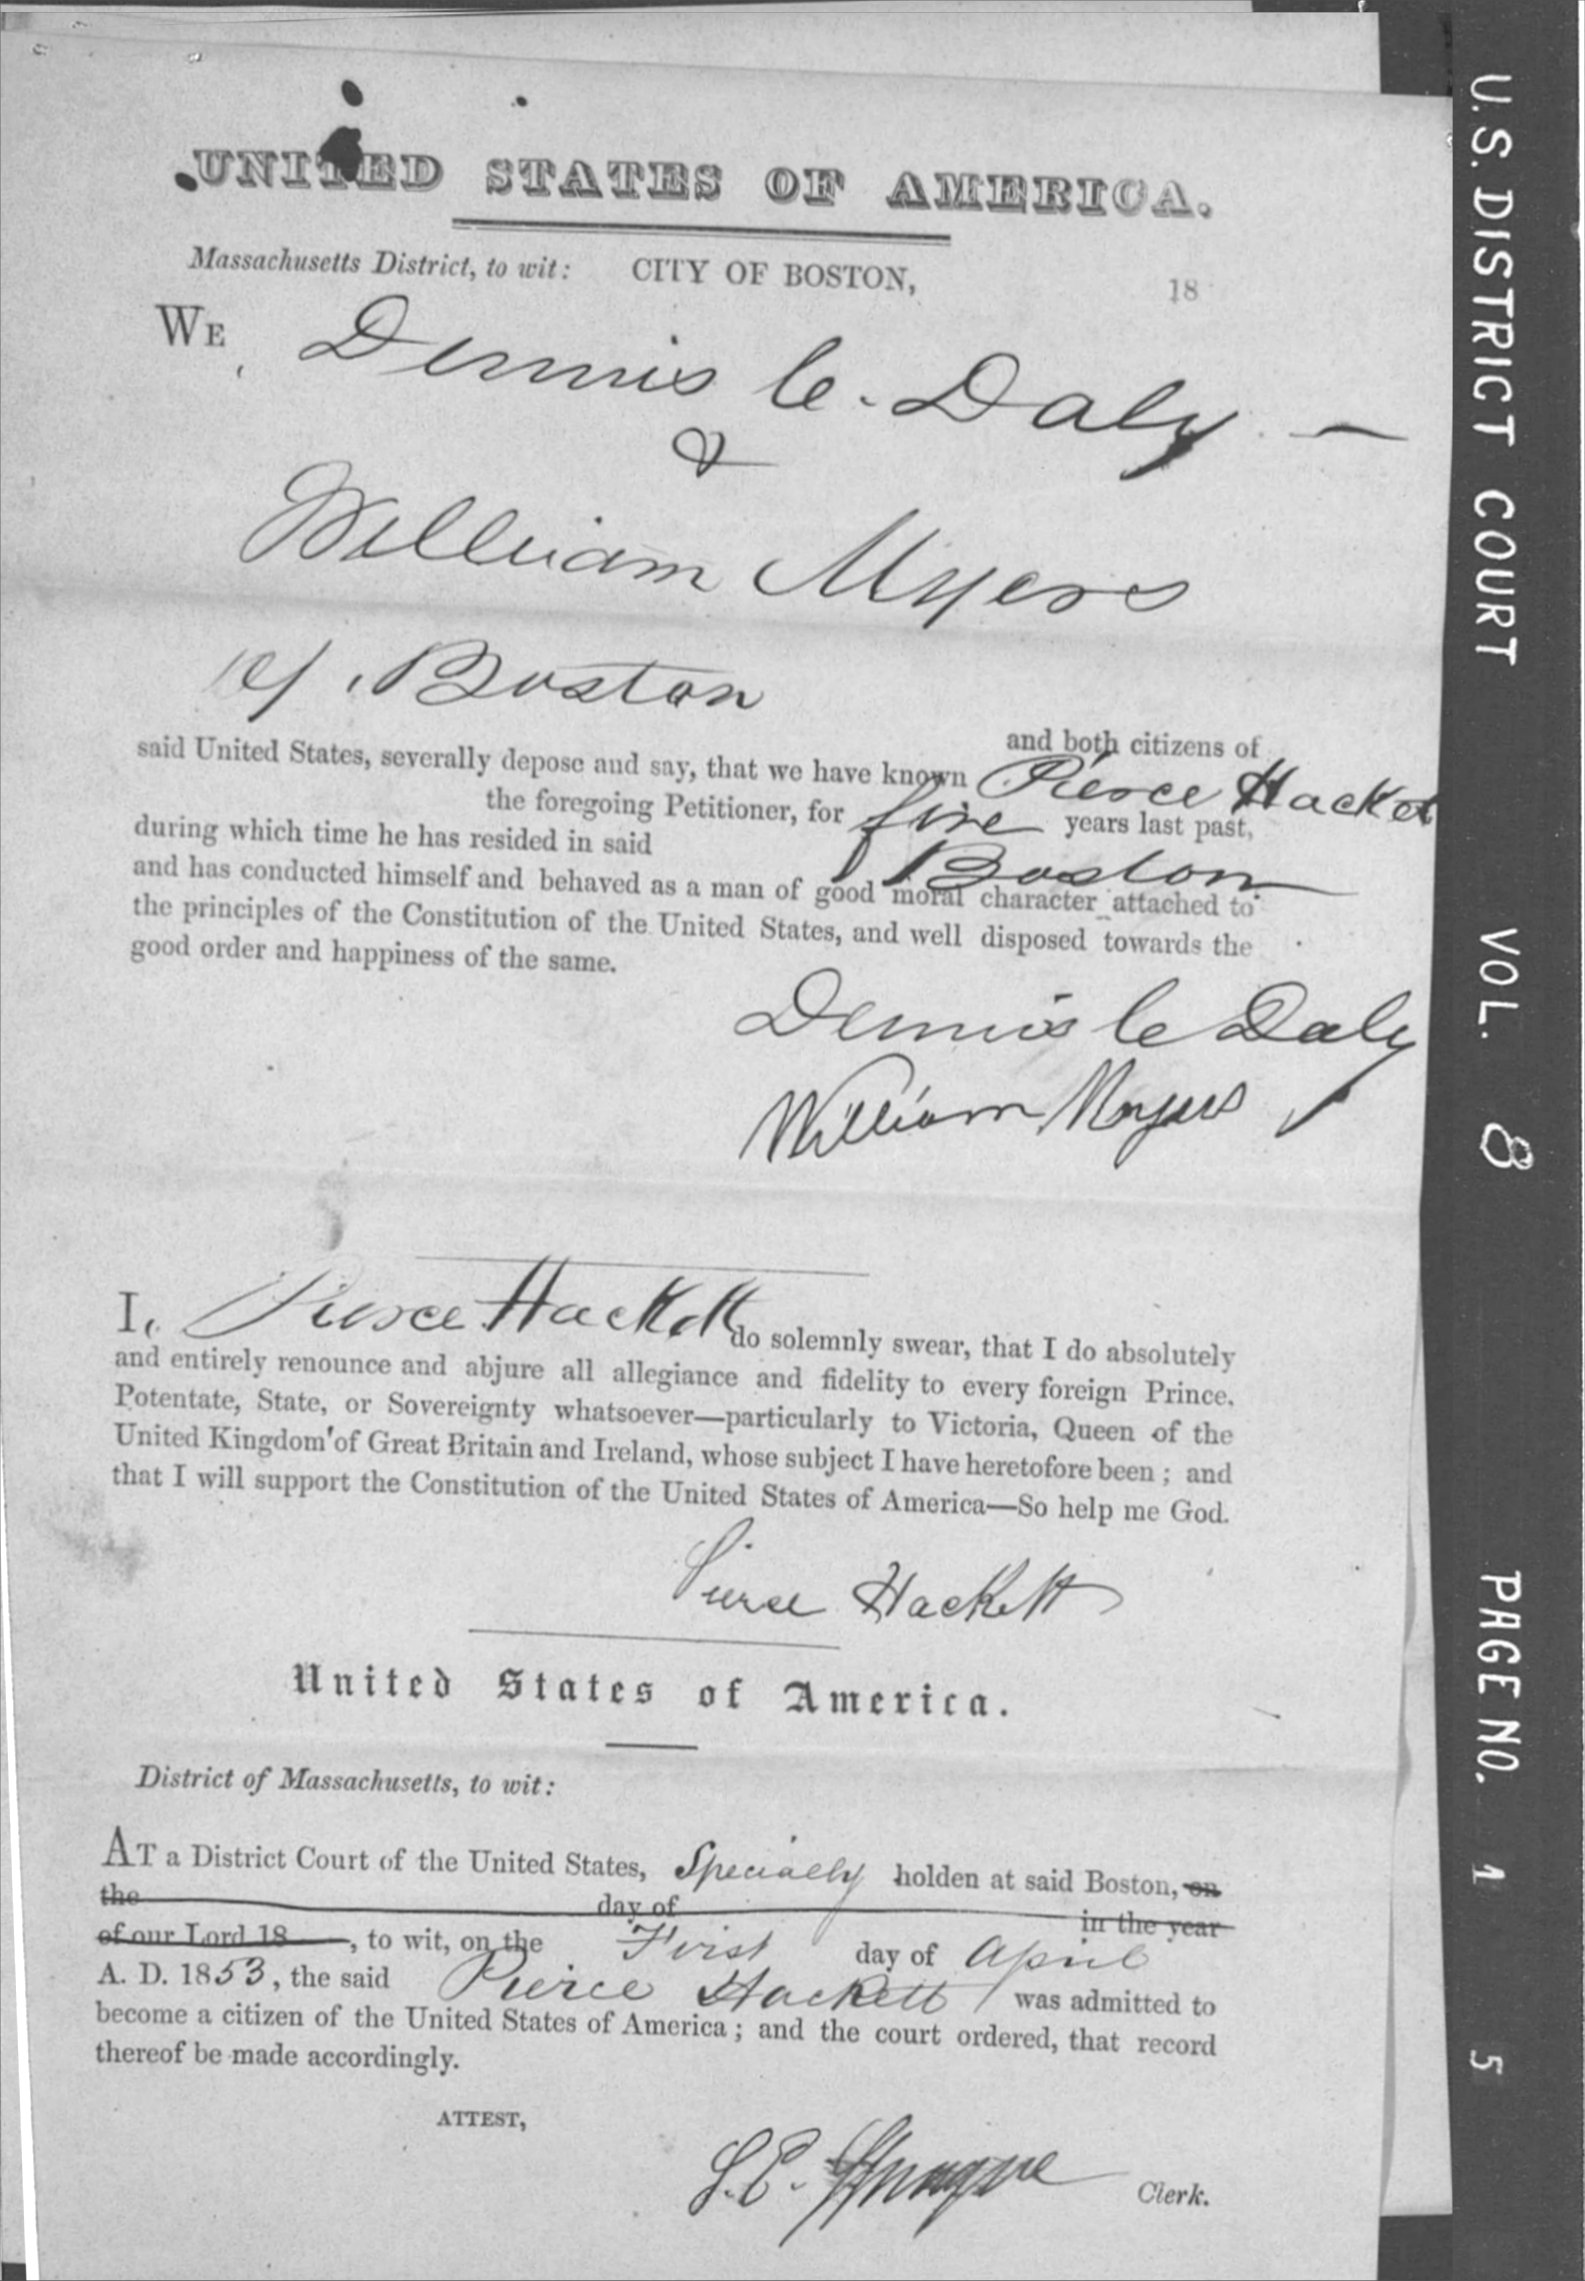 UNITED STATES OF AMERICA.
Massachusetts District, to wit: CITY OF BOSTON, 18
WE Dennis C. Daly —
&
William Myers
of Boston
and both citizens of
said United States, severally depose and say, that we have known Pierce Hackett
the foregoing Petitioner, for five years last past,
during which time he has resided in said Boston
and has conducted himself and behaved as a man of good moral character attached to
the principles of the Constitution of the United States, and well disposed towards the
good order and happiness of the same.
Dennis C Daly
William Myers
I, Pierce Hackett do solemnly swear, that I do absolutely
and entirely renounce and abjure all allegiance and fidelity to every foreign Prince,
Potentate, State, or Sovereignty whatsoever—particularly to Victoria, Queen of the
United Kingdom of Great Britain and Ireland, whose subject I have heretofore been; and
that I will support the Constitution of the United States of America—So help me God.
Pierce Hackett
United States of America.
District of Massachusetts, to wit:
AT a District Court of the United States, Specially holden at said Boston, on
the day of in the year
of our Lord 18 , to wit, on the First day of April
A. D. 1853, the said Pierce Hackett was admitted to
become a citizen of the United States of America; and the court ordered, that record
thereof be made accordingly.
ATTEST,
S. E. Sprague Clerk.
U.S. DISTRICT COURT VOL. 8 PAGE NO. 1 5